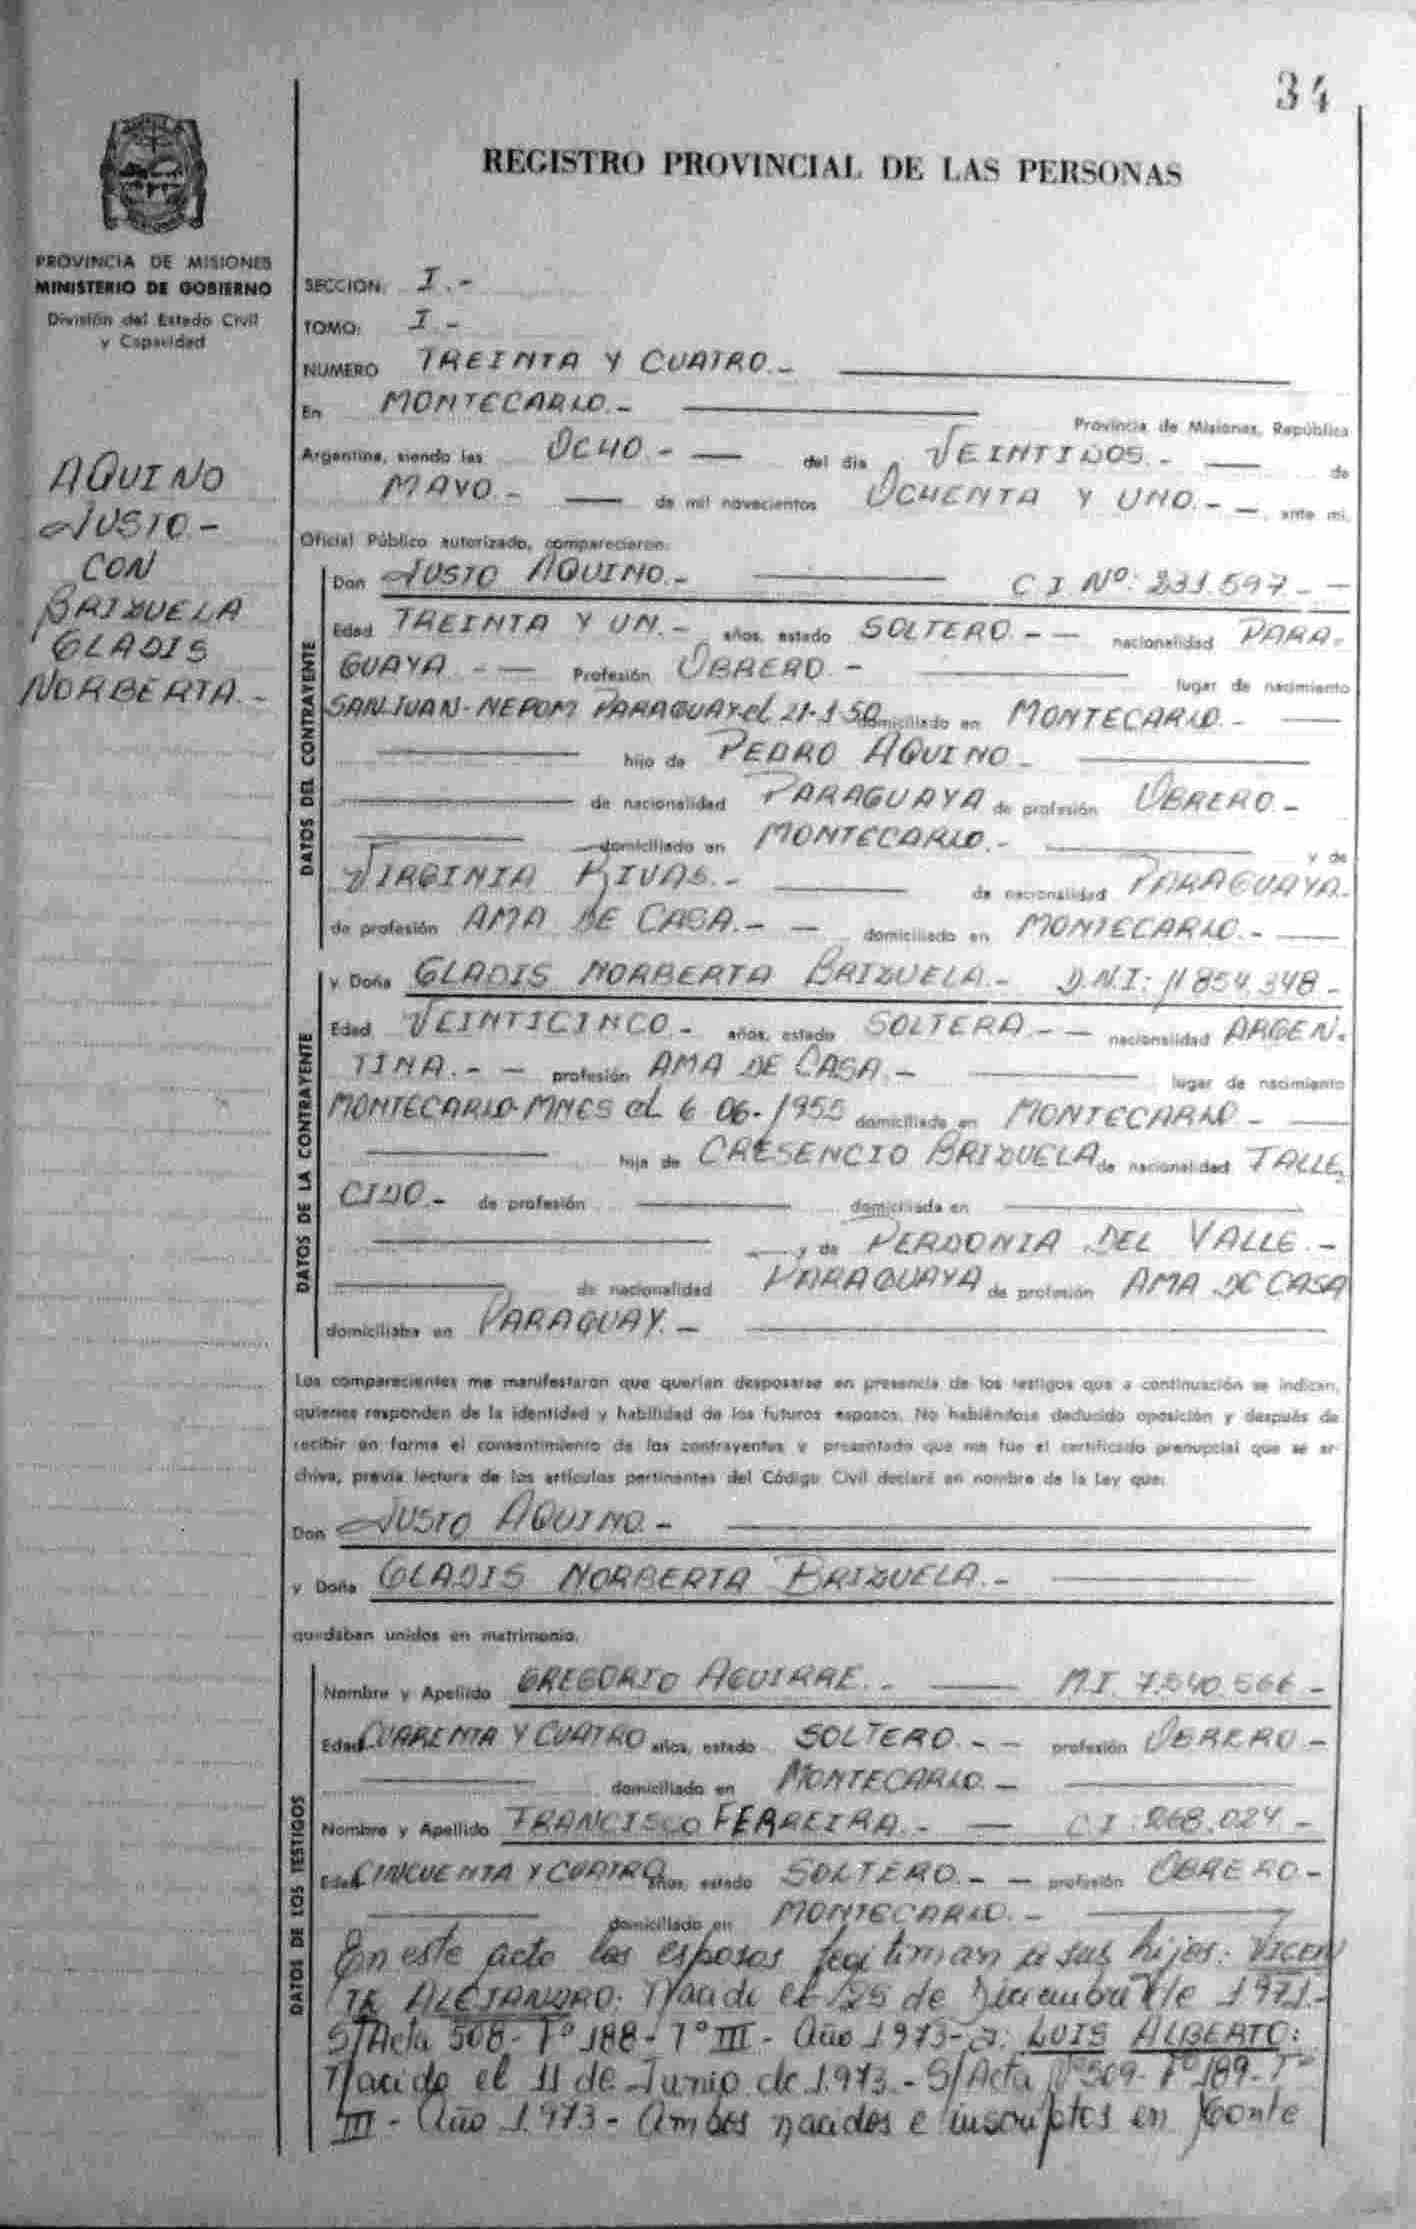 34
REGISTRO PROVINCIAL DE LAS PERSONAS
PROVINCIA DE MISIONES
MINISTERIO DE GOBIERNO
División del Estado Civil
y Capacidad
AQUINO
JUSTO.-
CON
BRIZUELA
GLADIS
NORBERTA.-
SECCION: I.-
TOMO: I.-
NUMERO TREINTA Y CUATRO.-
En MONTECARLO.- Provincia de Misiones, República
Argentina, siendo las OCHO.- del día VEINTIDOS.- de
MAYO.- de mil novecientos OCHENTA Y UNO.- ante mi,
Oficial Público autorizado, comparecieron:
DATOS DEL CONTRAYENTE
Don JUSTO AQUINO.- C I Nº: 231.597.-
Edad TREINTA Y UN.- años, estado SOLTERO.- nacionalidad PARA-
GUAYA.- Profesión OBRERO.- lugar de nacimiento
SAN JUAN-NEPOM PARAGUAY-el 21-1-50 domiciliado en MONTECARLO.-
hijo de PEDRO AQUINO.-
de nacionalidad PARAGUAYA de profesión OBRERO.-
domiciliado en MONTECARLO.- y de
VIRGINIA RIVAS.- de nacionalidad PARAGUAYA.
de profesión AMA DE CASA.- domiciliado en MONTECARLO.-
DATOS DE LA CONTRAYENTE
y Doña GLADIS NORBERTA BRIZUELA.- D.N.I: 11.854.348-
Edad VEINTICINCO.- años, estado SOLTERA.- nacionalidad ARGEN-
TINA.- profesión AMA DE CASA.- lugar de nacimiento
MONTECARLO-MNES el 6 06-1955 domiciliada en MONTECARLO.-
hija de CRESENCIO BRIZUELA de nacionalidad FALLE,
CIDO.- de profesión domiciliada en
y de PERDONIA DEL VALLE.-
de nacionalidad PARAGUAYA de profesión AMA DE CASA
domiciliaba en PARAGUAY.-
Los comparecientes me manifestaron que querían desposarse en presencia de los testigos que a continuación se indican,
quienes responden de la identidad y habilidad de los futuros esposos. No habiéndose deducido oposición y después de
recibir en forma el consentimiento de los contrayentes y presentado que me fue el certificado prenupcial que se ar-
chiva, previa lectura de los artículos pertinentes del Código Civil declaré en nombre de la Ley que:
Don JUSTO AQUINO.-
y Doña GLADIS NORBERTA BRIZUELA.-
quedaban unidos en matrimonio.
DATOS DE LOS TESTIGOS
Nombre y Apellido GREGORIO AGUIRRE.- M.I. 7.540.566-
Edad CUARENTA Y CUATRO años, estado SOLTERO.- profesión OBRERO.-
domiciliado en MONTECARLO.-
Nombre y Apellido FRANCISCO FERREIRA.- C I: 268.024.-
Edad CINCUENTA Y CUATRO años, estado SOLTERO.- profesión OBRERO-
domiciliado en MONTECARLO.-
En este acto los esposos legitiman a sus hijos: VICEN
TE ALEJANDRO: Nacido el 25 de Diciembre de 1971.-
S/Acta 508- Fº 188- Tº III- Año 1973- a: LUIS ALBERTO:
Nacido el 11 de Junio de 1.973.- S/Acta Nº509- Fº 189- Tº
III- Año 1.973- Ambos nacidos e inscriptos en Monte